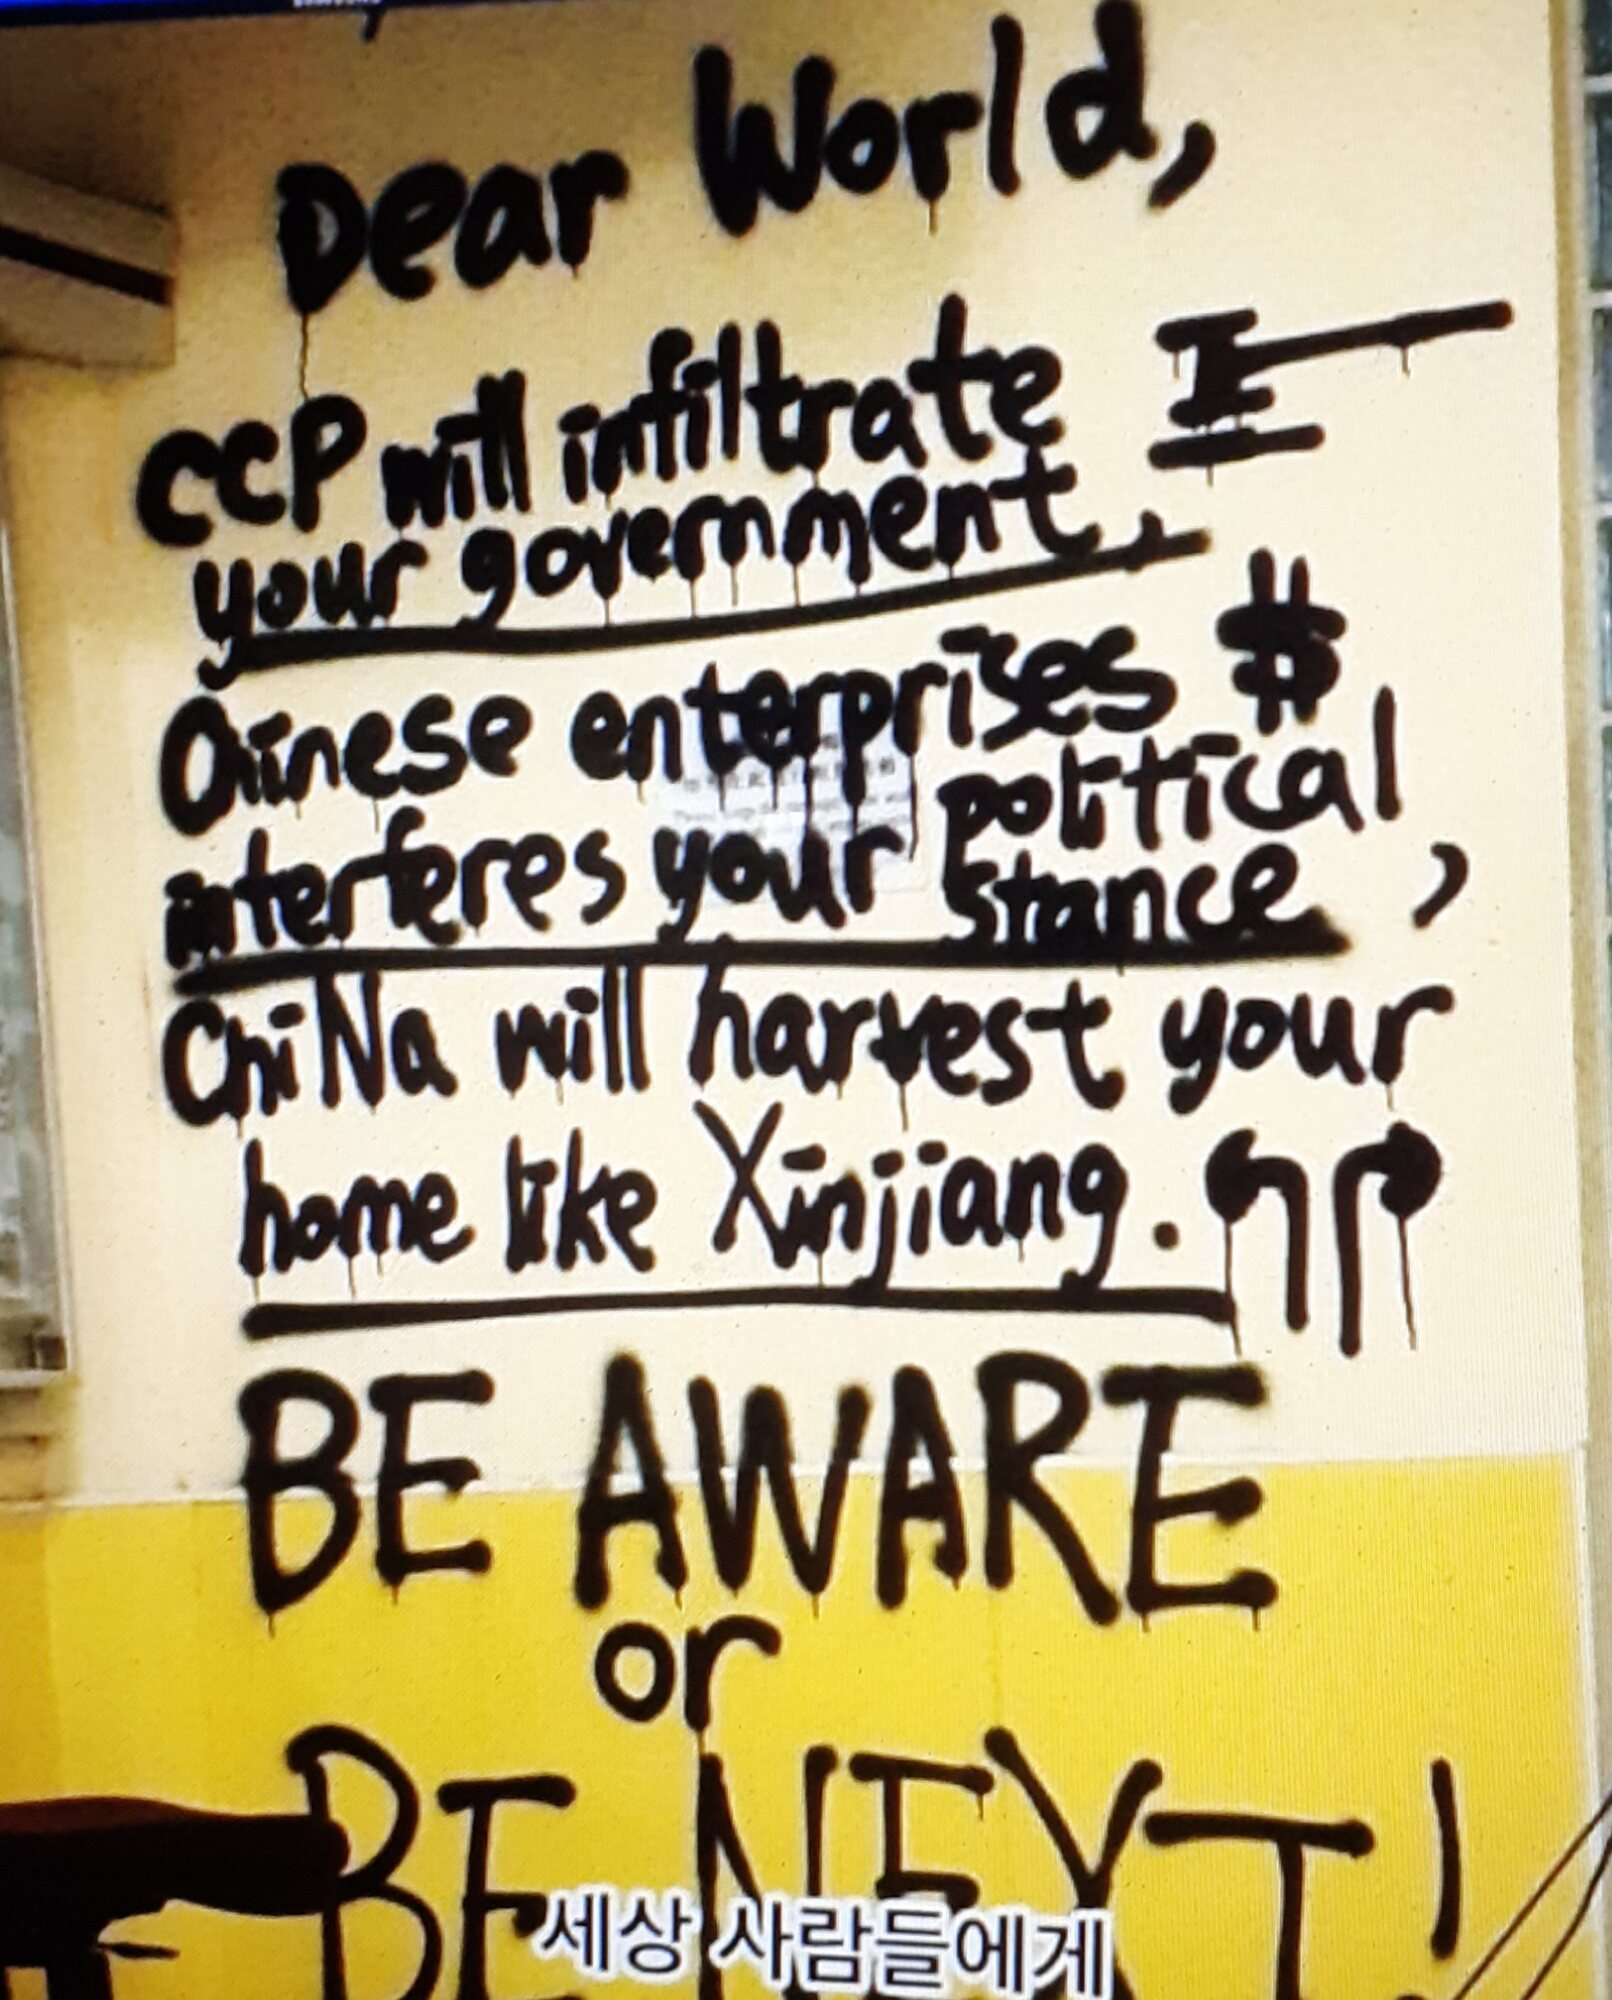 Dear World,
CCP will infiltrate
your government.
Chinese enterprises #
interferes your political
stance,
ChiNa will harvest your
home like Xinjiang.
BE AWARE
or
BE NEXT!
세상 사람들에게